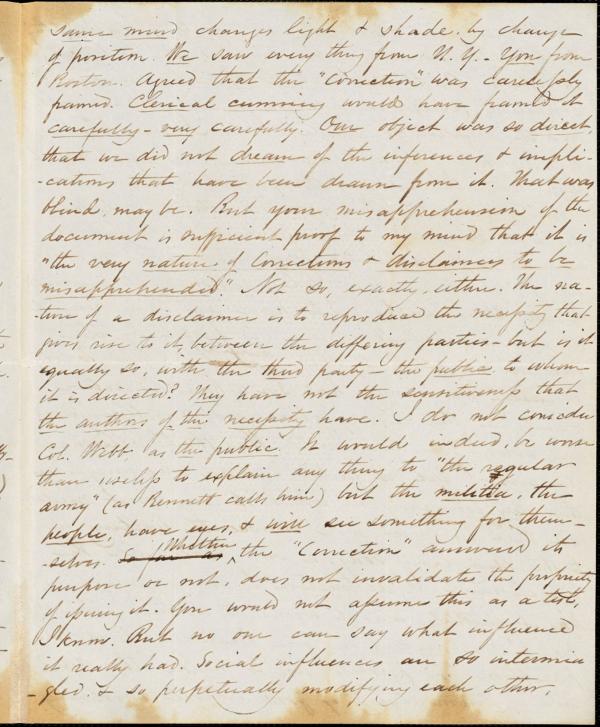 same mind changes light & shade, by change
of position. We saw every thing from N. Y. - You from
Boston. Agreed that the "Correction" was carelessly
framed. Clerical cunning would have framed it
carefully - very carefully. Our object was so direct,
that we did not dream of the inferences & impli-
-cations that have been drawn from it. That was
blind, may be. But your misapprehension of the
document is sufficient proof to my mind that it is
"the very nature of Corrections & disclaimers to be
misapprehended." Not so, exactly, either. The na-
-ture of a disclaimer is to reproduce the necessity that
gives rise to it, between the differing parties - but is it
equally so, with the third party - the public to whom
it is directed? They have not the sensitiveness that
the authors of the necessity have. I do not consider
Col. Webb as the public. It would indeed, be worse
than useless to explain any thing to "the regular
army" (as Bennett calls him) but the militia, the
people, have eyes, & will see something for them-
-selves. So far as Whether the "Correction" answered its
purpose or not, does not invalidate the propriety
of issuing it. You would not assume this as a test,
I know. But no one can say what influence
it really had. Social influences are so intermin
-gled, & so perpetually modifying each other,